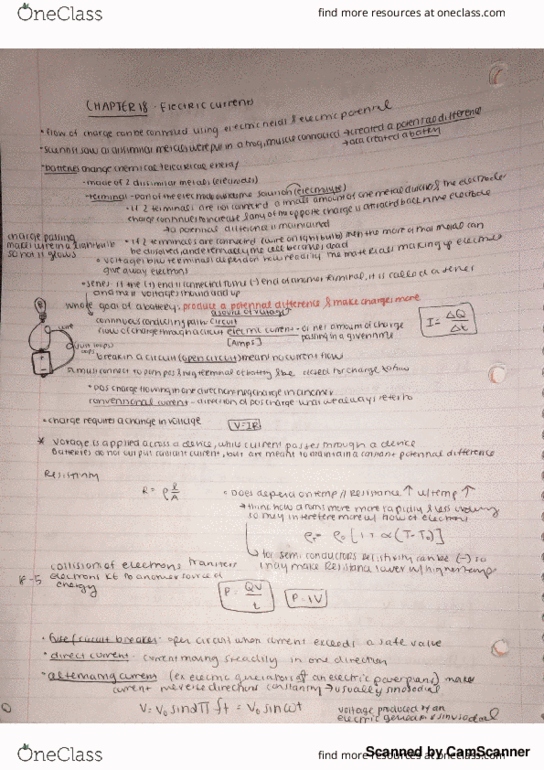 OneClass
find more resources at oneclass.com
CHAPTER 18 - Electric currents
• flow of charge can be controlled using electric fields & electric potential
• scientist saw as dissimilar metals were put in a frog, muscle contracted → created a potential difference
→ created a battery
• batteries change chemical electrical energy
- made of 2 dissimilar metals (electrodes)
- terminal - part of the electrode outside solution (electrolyte)
• if 2 terminals are not connected a small amount of one metal dissolves & the electrode
charge continues to increase & any of opposite charge is attracted back in the electrode
→ potential difference is maintained
charge passing
makes wire in lightbulb
so hot it glows
• if 2 terminals are connected (wire or light bulb) then the more of that metal can
be dissolved and eventually the cell becomes dead
• voltage b/w terminals depend on how readily the materials making up electrode
give away electrons
• series: if the (+) end is connected to (-) end of another terminal, it is called a series
and their voltages add up
whole goal of a battery: produce a potential difference & make charges move
a source of voltage
wire
continuous conducting path: circuit
flow of charge through a circuit electric current - or net amount of charge
passing in a given time
[Amps]
I = ΔQ
Δt
• break in a circuit (open circuit) mean no current flow
must connect to pos & neg terminal of battery & be closed for charge to flow
• pos charge flowing in one direction = neg charge in another
conventional current - direction of pos charge what we always refer to
• charge requires a change in voltage V=IR
* voltage is applied across a device, while current passes through a device
batteries do not output constant current, but are meant to maintain a constant potential difference
Resistivity
R = ρ l/A
• Does depend on temp // Resistance ↑ w/ temp ↑
→ think how atoms move more rapidly & less orderly
so may interfere more w/ flow of electrons
ρT = ρ0 [1 + α(T - T0)]
↳ for semi conductors resistivity can be (-) so
may make resistance lower w/ higher temp
18-5
collision of electrons transfers
electrons KE to another source of
energy
P = QV
t
P = IV
• fuse/circuit breaker: open circuit when current exceeds a safe value
• direct current: current moving steadily in one direction
• alternating current (ex electric generators of an electric powerplant) makes
current reverse directions constantly → usually sinusoidal
V = V0 sin2πft = V0 sinωt
voltage produced by an
electric generator is sinusoidal
OneClass
find more resources at oneclass.com
Scanned by CamScanner